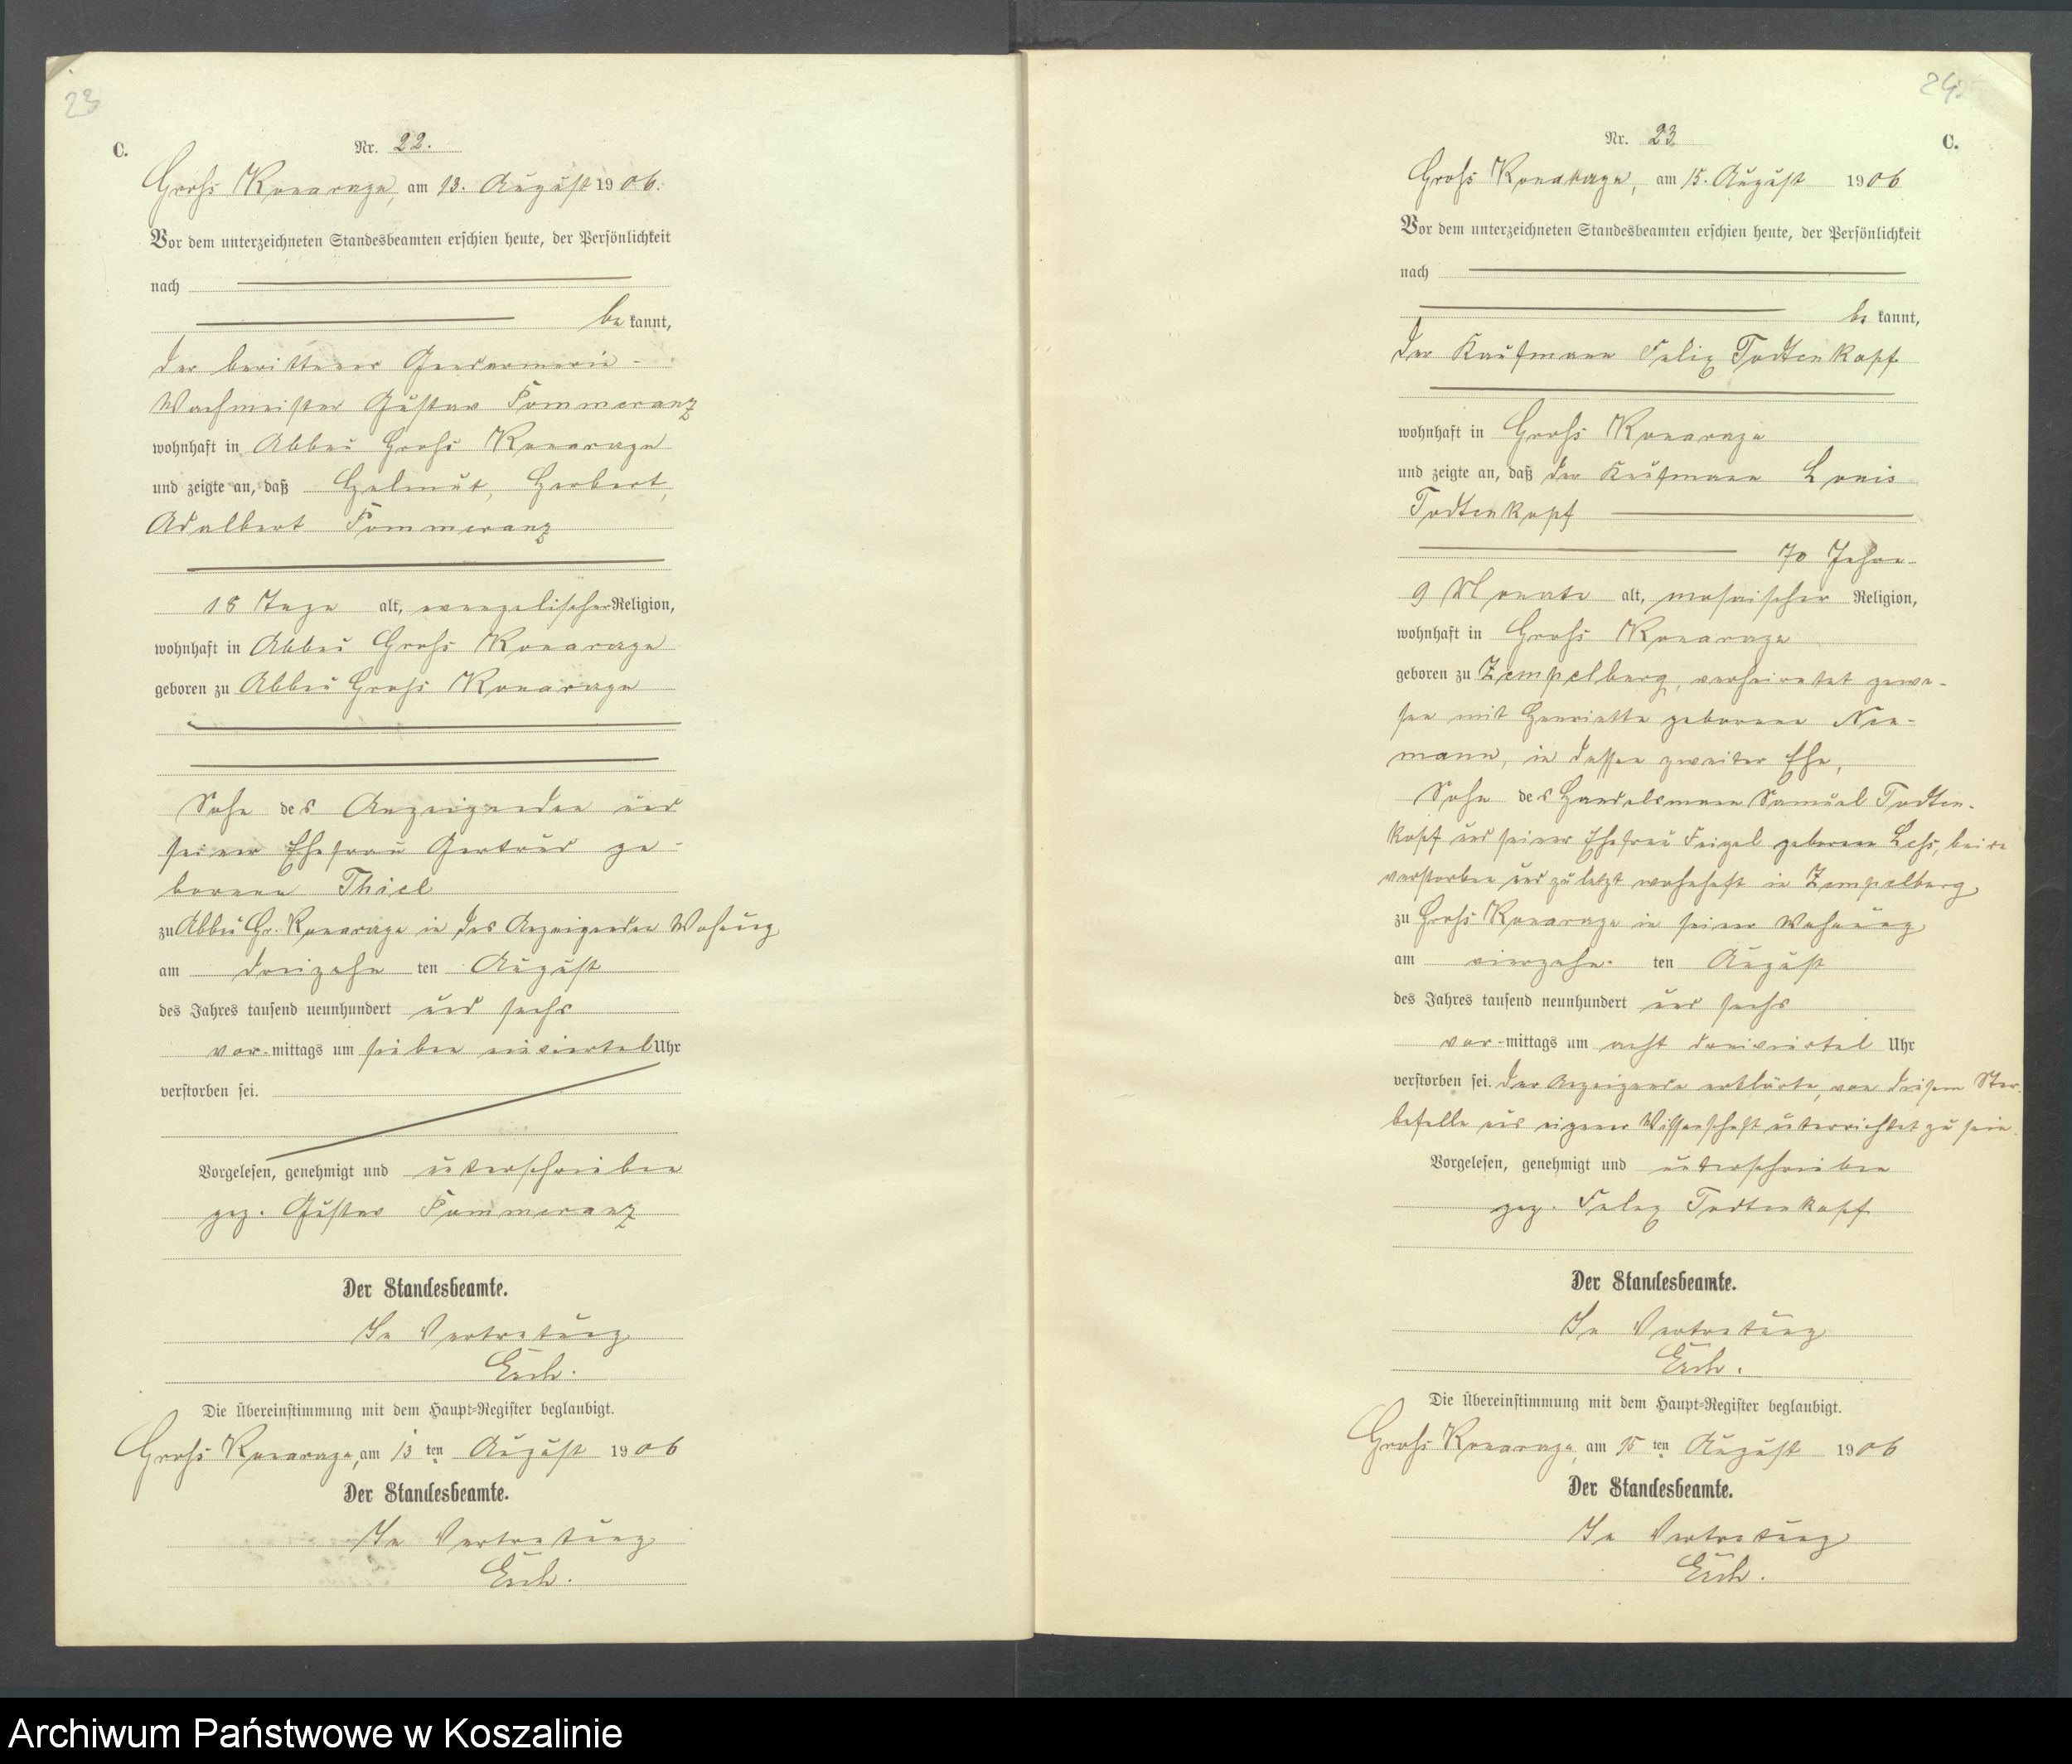 23
C.
Nr. 22.
Groß Konarage, am 13. August 1906.
Vor dem unterzeichneten Standesbeamten erschien heute, der Persönlichkeit
nach
be kannt,
der berittene Gendarmerie-
Wachmeister Gustav Pommeranz
wohnhaft in Abbau Groß Konarage
und zeigte an, daß Helmut, Herbert,
Adalbert Pommeranz
18 Tage alt, evangelischer Religion,
wohnhaft in Abbau Groß Konarage
geboren zu Abbau Groß Konarage
Sohn des Anzeigenden und
seiner Ehefrau Gertrud ge-
borene Thiel
zu Abbau Gr. Konarage in des Anzeigenden Wohnung
am dreizehn ten August
des Jahres tausend neunhundert und sechs
vor-mittags um sieben einviertel Uhr
verstorben sei.
Vorgelesen, genehmigt und unterschrieben
gez. Gustav Pommeranz
Der Standesbeamte.
In Vertretung
Die Übereinstimmung mit dem Haupt-Register beglaubigt.
Groß Konarage, am 13 ten August 1906
Der Standesbeamte.
In Vertretung
24
Nr. 23
C.
Groß Konarage, am 15. August 1906
Vor dem unterzeichneten Standesbeamten erschien heute, der Persönlichkeit
nach
be kannt,
der Kaufmann Felix Todtenkopf
wohnhaft in Groß Konarage
und zeigte an, daß der Kaufmann Louis
Todtenkopf
70 Jahre
9 Monate alt, mosaischer Religion,
wohnhaft in Groß Konarage
geboren zu Zempelberg, verheiratet gewe-
sen mit Henriette geborene Neu-
mann, in dessen zweiter Ehe,
Sohn des Handelsmann Samuel Todten-
kopf und seiner Ehefrau Feigel geborene beide
verstorben und zuletzt wohnhaft in Zempelberg
zu Groß Konarage in seiner Wohnung
am vierzehn- ten August
des Jahres tausend neunhundert und sechs
vor-mittags um acht dreiviertel Uhr
verstorben sei. Der Anzeigende erklärte, von diesem Ster-
befalle aus eigener Wissenschaft unterrichtet zu sein.
Vorgelesen, genehmigt und unterschrieben
gez. Felix Todtenkopf
Der Standesbeamte.
In Vertretung
Die Übereinstimmung mit dem Haupt-Register beglaubigt.
Groß Konarage, am 15 ten August 1906
Der Standesbeamte.
In Vertretung
Archiwum Państwowe w Koszalinie